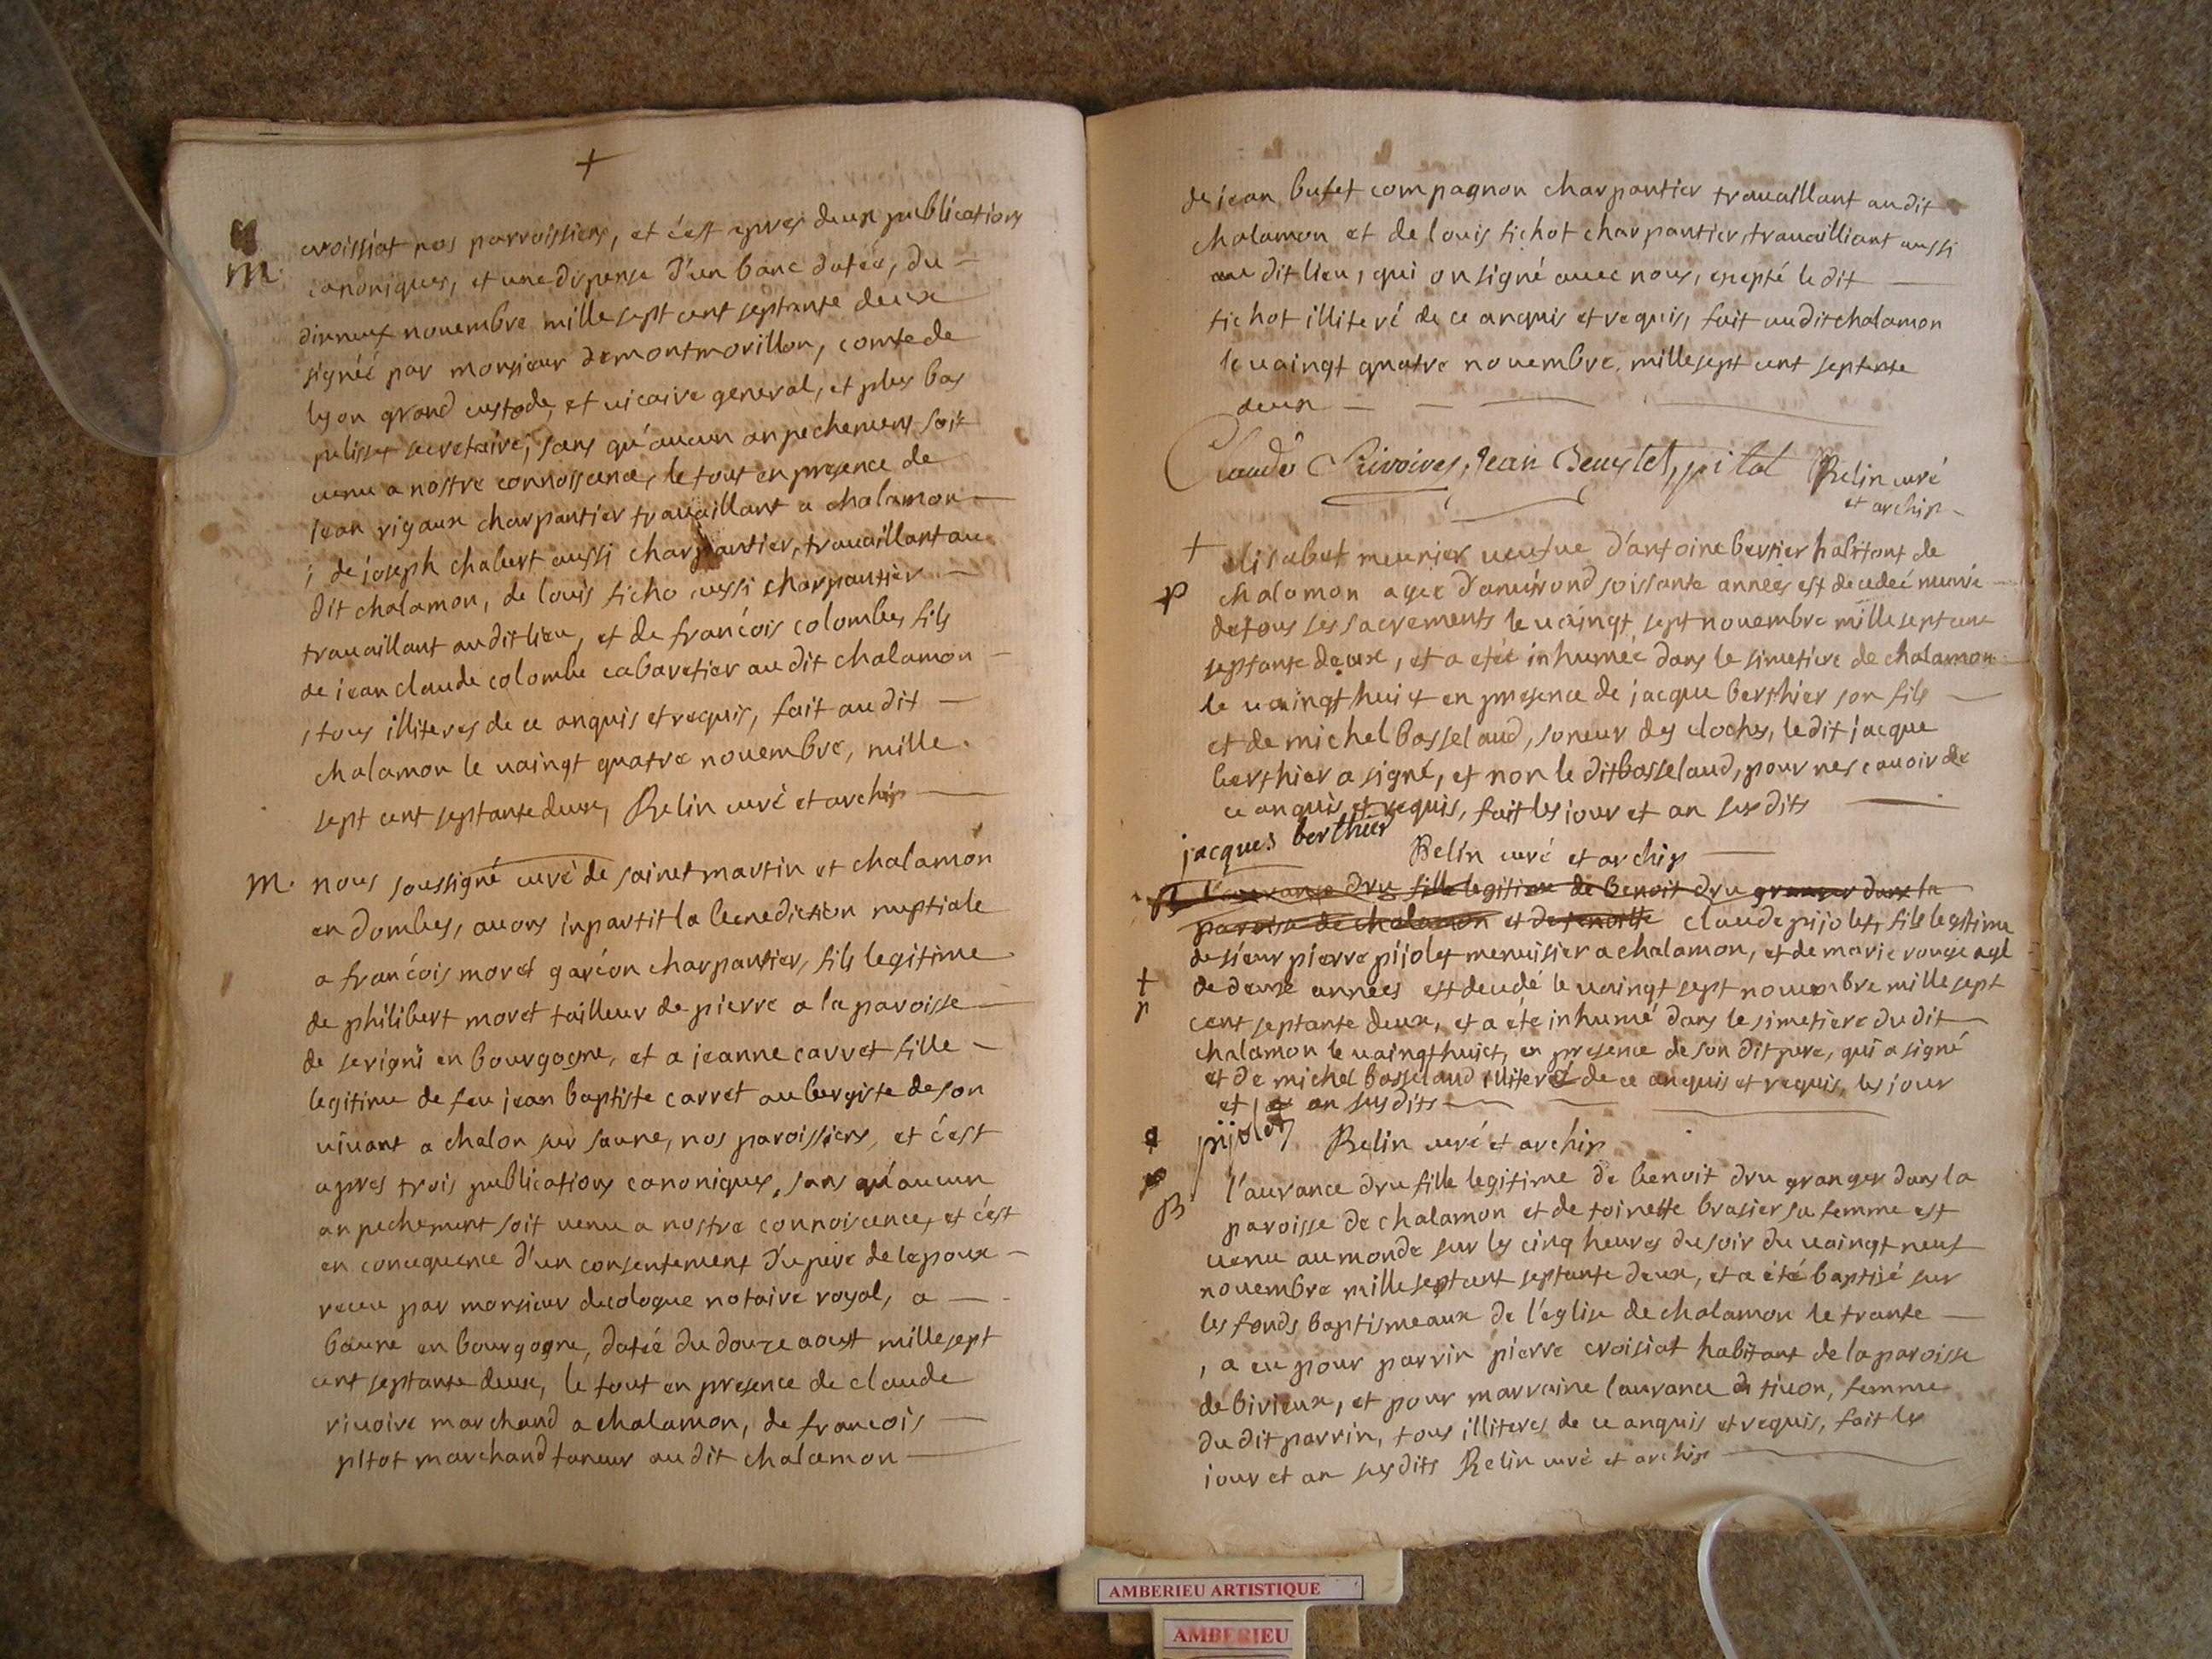 +
M.
croissiat nos parroissiens, et c'est apres deux publications
canoniques, et une dispense d'un banc datée, du
dixneuf novembre mille sept cent septante deux
signéé par monsieur demontmorillon, comte de
lyon grand custode, et vicaire general, et plus bas
secretaire, sans qu'aucun anpechement soit
venu a nostre connoissance, le tout en presence de
jean rigaux charpantier travaillant a chalamon
, de joseph chabert aussi charpantier, travaillant au
dit chalamon, de louis ficho aussi charpantier
travaillant audit lieu, et de francois colombes fils
de jean claude colombe cabaretier au dit chalamon
, tous illiteres de ce anquis et requis, fait au dit
chalamon le vaingt quatre novembre, mille
sept cent septante deux, Relin curé et archip
M. nous soussigné curé de sainct martin et chalamon
en dombes, avons inpartit la benediction nuptiale
a francois moret garcon charpantier, fils legitime
de philibert moret tailleur de pierre a la paroisse
de serigni en bourgogne, et a jeanne carret fille
legitime de feu jean baptiste carret aubergiste de son
vivant a chalon sur saune, nos paroissiens, et c'est
apres trois publications canoniques, sans qu'aucun
anpechement soit venu a nostre connoiscence, et c'est
en concequence d'un consentement du pere de lepoux
receu par monsieur decologue notaire royal, a
baune en bourgogne, datéé du douze aoust mille sept
cent septante deux, le tout en presence de claude
rivoire marchand a chalamon, de francois
pitot marchand taneur au dit chalamon
de jean butet compagnon charpantier travaillant audit
chalamon et de louis fichot charpantier, travailliant aussi
au dit lieu, qui on signé avec nous, excepté le dit
fichot illiteré de ce anquis et requis, fait audit chalamon
le vaingt quatre novembre, mille sept cent septante
deux
Claude Rivoires, jean pitot Relin curé
et archip
+ elisabet meunier veufve d'antoine bertier habitant de
p chalamon ageé d'anvirond soissante années est decedeé munie
de tous ses sacrements le vaingt sept novembre mille sept cent
septante deux, et a etéé inhumeé dans le simetiere de chalamon
le vaingt huict en presence de jacque berthier son fils
et de michel basselaud, soneur des cloches, le dit jacque
berthier a signé, et non le dit basselaud, pour ne scavoir de
ce anquis et requis, fait les jour et an susdits
jacques berthier Relin curé et archip
B l'aurance dru fille legitime de benoit dru granger dans la
paroisse de chalamon et de claude pijolet, fils legitime
de sieur pierre pijolet menuisier a chalamon, et de marie rouge agé
+ de deux années est decedé le vaingt sept novembre mille sept
p cent septante deux, et a été inhumé dans le simetiere du dit
chalamon le vaingt huict, en presence de son dit pere, qui a signé
et de michel basselaud illiteré de ce anquis et requis, les jour
et an susdits
pijolet Relin curé et archip
B l'aurance dru fille legitime de benoit dru granger dans la
paroisse de chalamon et de toinette brasier sa femme est
venu au monde sur les cinq heures du soir du vaingt neuf
novembre mille sept cent septante deux, et a été baptisé sur
les fonds baptismeaux de l'eglise de chalamon le trante
, a eu pour parrin pierre croisiat habitant de la paroisse
de birieux, et pour marraine laurance tivon, femme
du dit parrin, tous illiteres de ce anquis et requis, fait les
jour et an susdits Relin curé et archip
AMBERIEU ARTISTIQUE
AMBERIEU